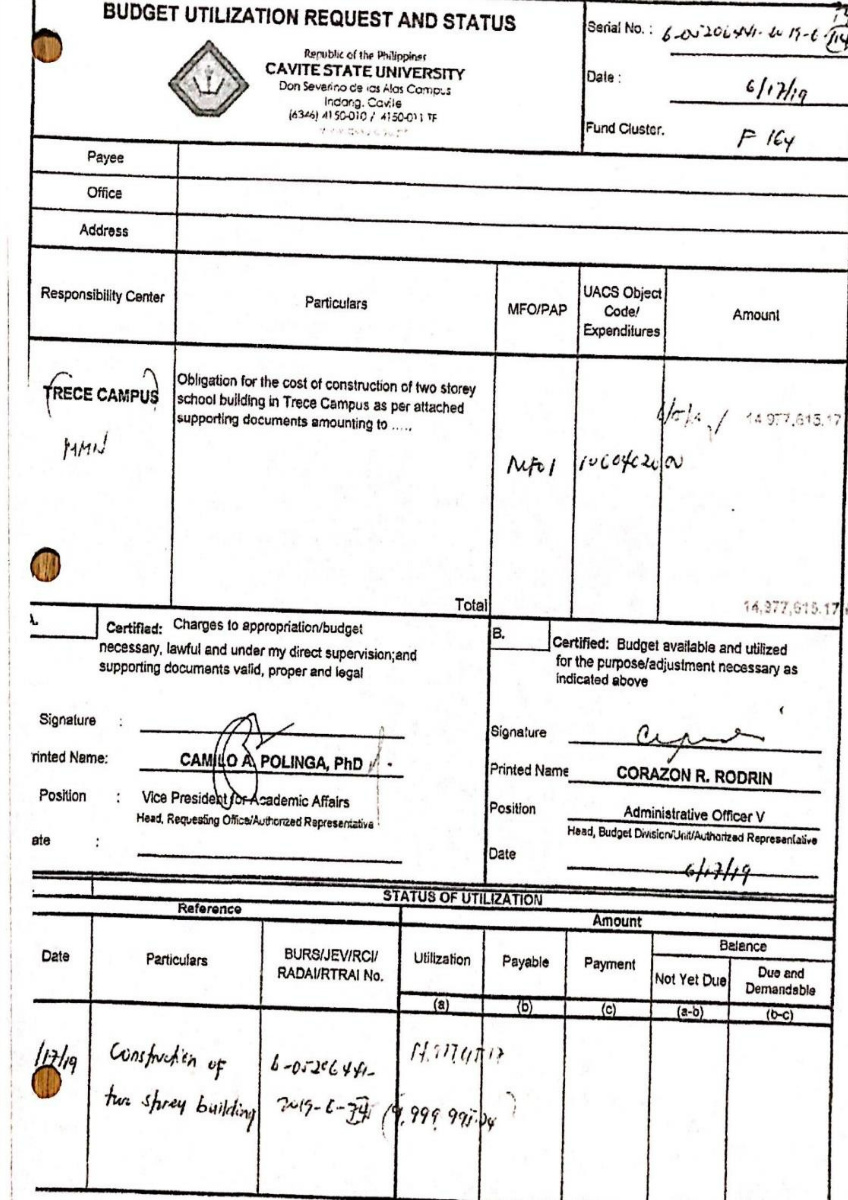 BUDGET UTILIZATION REQUEST AND STATUS
Republic of the Philippines
CAVITE STATE UNIVERSITY
Don Severino de las Alas Campus
Indang, Cavite
(6346) 4150-010 / 4150-011
Serial No. :
Date : 6/17/19
Fund Cluster. F 164
Payee
Office
Address
Responsibility Center Particulars MFO/PAP UACS Object Code/ Expenditures Amount
TRECE CAMPUS
Obligation for the cost of construction of two storey
school building in Trece Campus as per attached
supporting documents amounting to .....
14,977,615.17
MFO1
Total 14,977,615.17
A. Certified: Charges to appropriation/budget
necessary, lawful and under my direct supervision;and
supporting documents valid, proper and legal
Signature :
Printed Name: CAMILO A. POLINGA, PhD
Position : Vice President for Academic Affairs
Head, Requesting Office/Authorized Representative
Date :
B. Certified: Budget available and utilized
for the purpose/adjustment necessary as
indicated above
Signature
Printed Name CORAZON R. RODRIN
Position Administrative Officer V
Head, Budget Division/Unit/Authorized Representative
Date 6/17/19
STATUS OF UTILIZATION
Reference Amount
Date Particulars BURS/JEV/RCI/ RADAI/RTRAI No. Utilization Payable Payment Balance
Not Yet Due Due and Demandable
(a) (b) (c) (a-b) (b-c)
/17/19 Construction of
two storey building